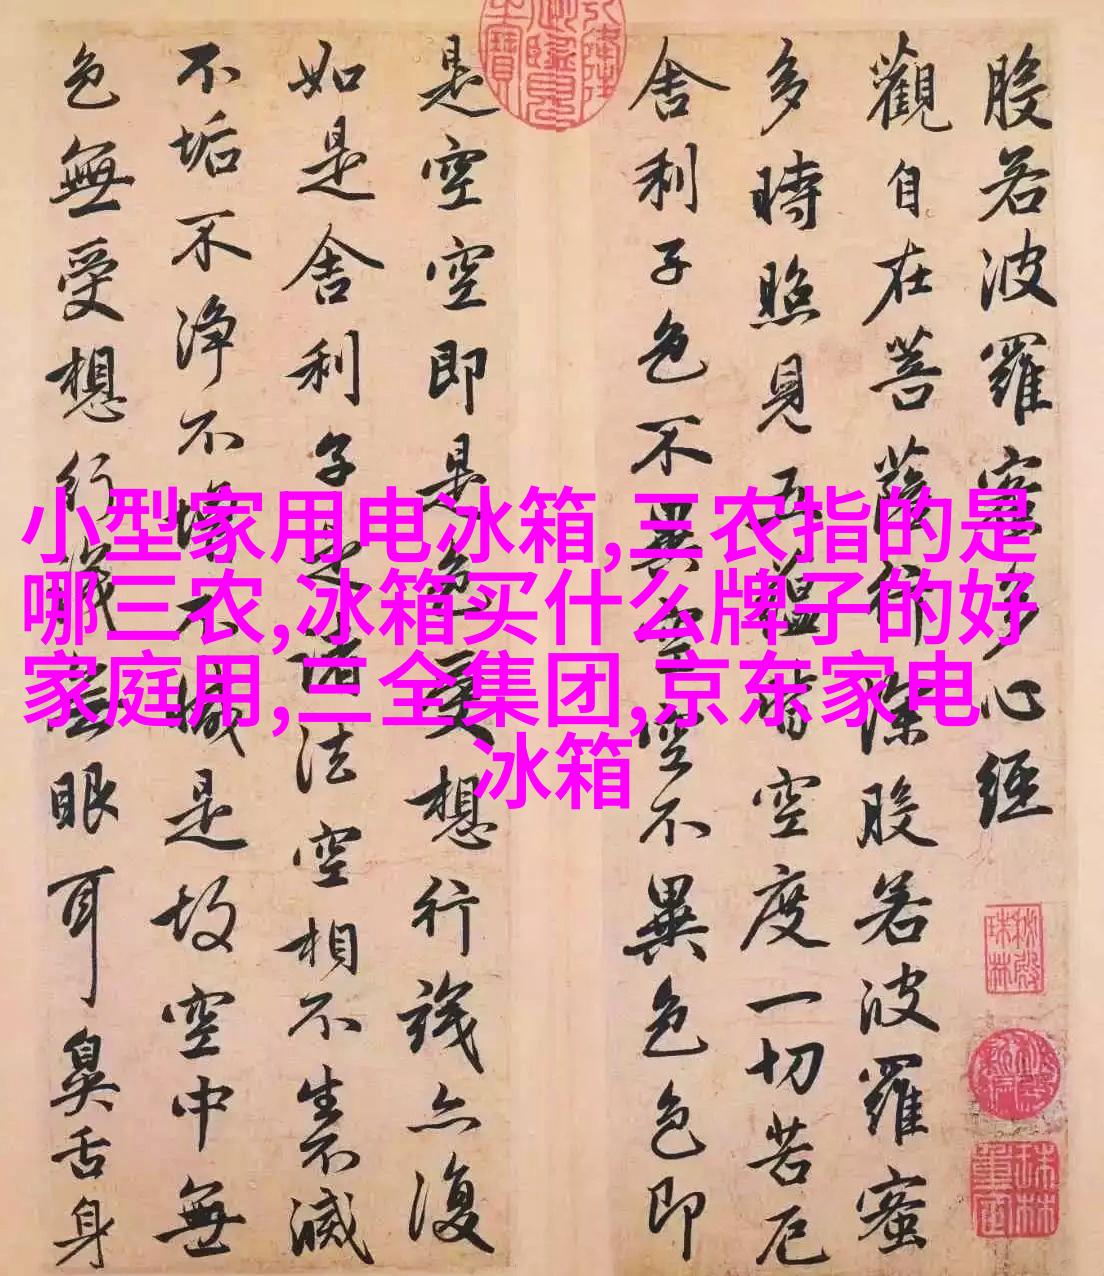 般若波羅蜜多心經
觀自在菩薩行深般若波羅蜜
多時照見五蘊皆空度一切苦厄
舍利子色不異空空不異色色即
是空空即是色受想行識亦復
如是舍利子是諸法空相不生不滅
不垢不淨不增不減是故空中無
色無受想行識無眼耳鼻舌身
小型家用电冰箱,三农指的是
哪三农,冰箱买什么牌子的好
家庭用,三全集团,京东家电
冰箱
秘殿珠林